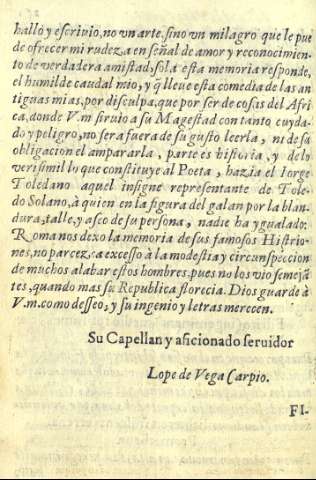 hallo y escriuio, no vn arte, sino vn milagro que le pue
de ofrecer mi rudeza en señal de amor y reconocimien-
to de verdadera amistad, sola esta memoria responde,
el humilde caudal mio, y q̃ lleue esta comedia de las an
tiguas mias, por disculpa, que por ser de cosas del Afri
ca, donde V.m siruio a su Magestad con tanto cuyda-
do y peligro, no sera fuera de su gusto leerla, ni de su
obligacion el ampararla, parte es historia, y de lo
verisimil lo que constituye al Poeta, hazia el Iorge
Toledano aquel insigne representante de Tole-
do Solano, à quien en la figura del galan por la blan-
dura, talle, y aseo de su persona, nadie ha ygualado:
Romanos dexo la memoria de sus famosos Histrio-
nes, no parezca excesso à la modestia y circunspeccion
de muchos alabar estos hombres, pues no los vio semejā
tes, quando mas su Republica florecia. Dios guarde à
V.m. como desseo, y su ingenio y letras merecen.
Su Capellan y aficionado seruidor
Lope de Vega Carpio.
FI-